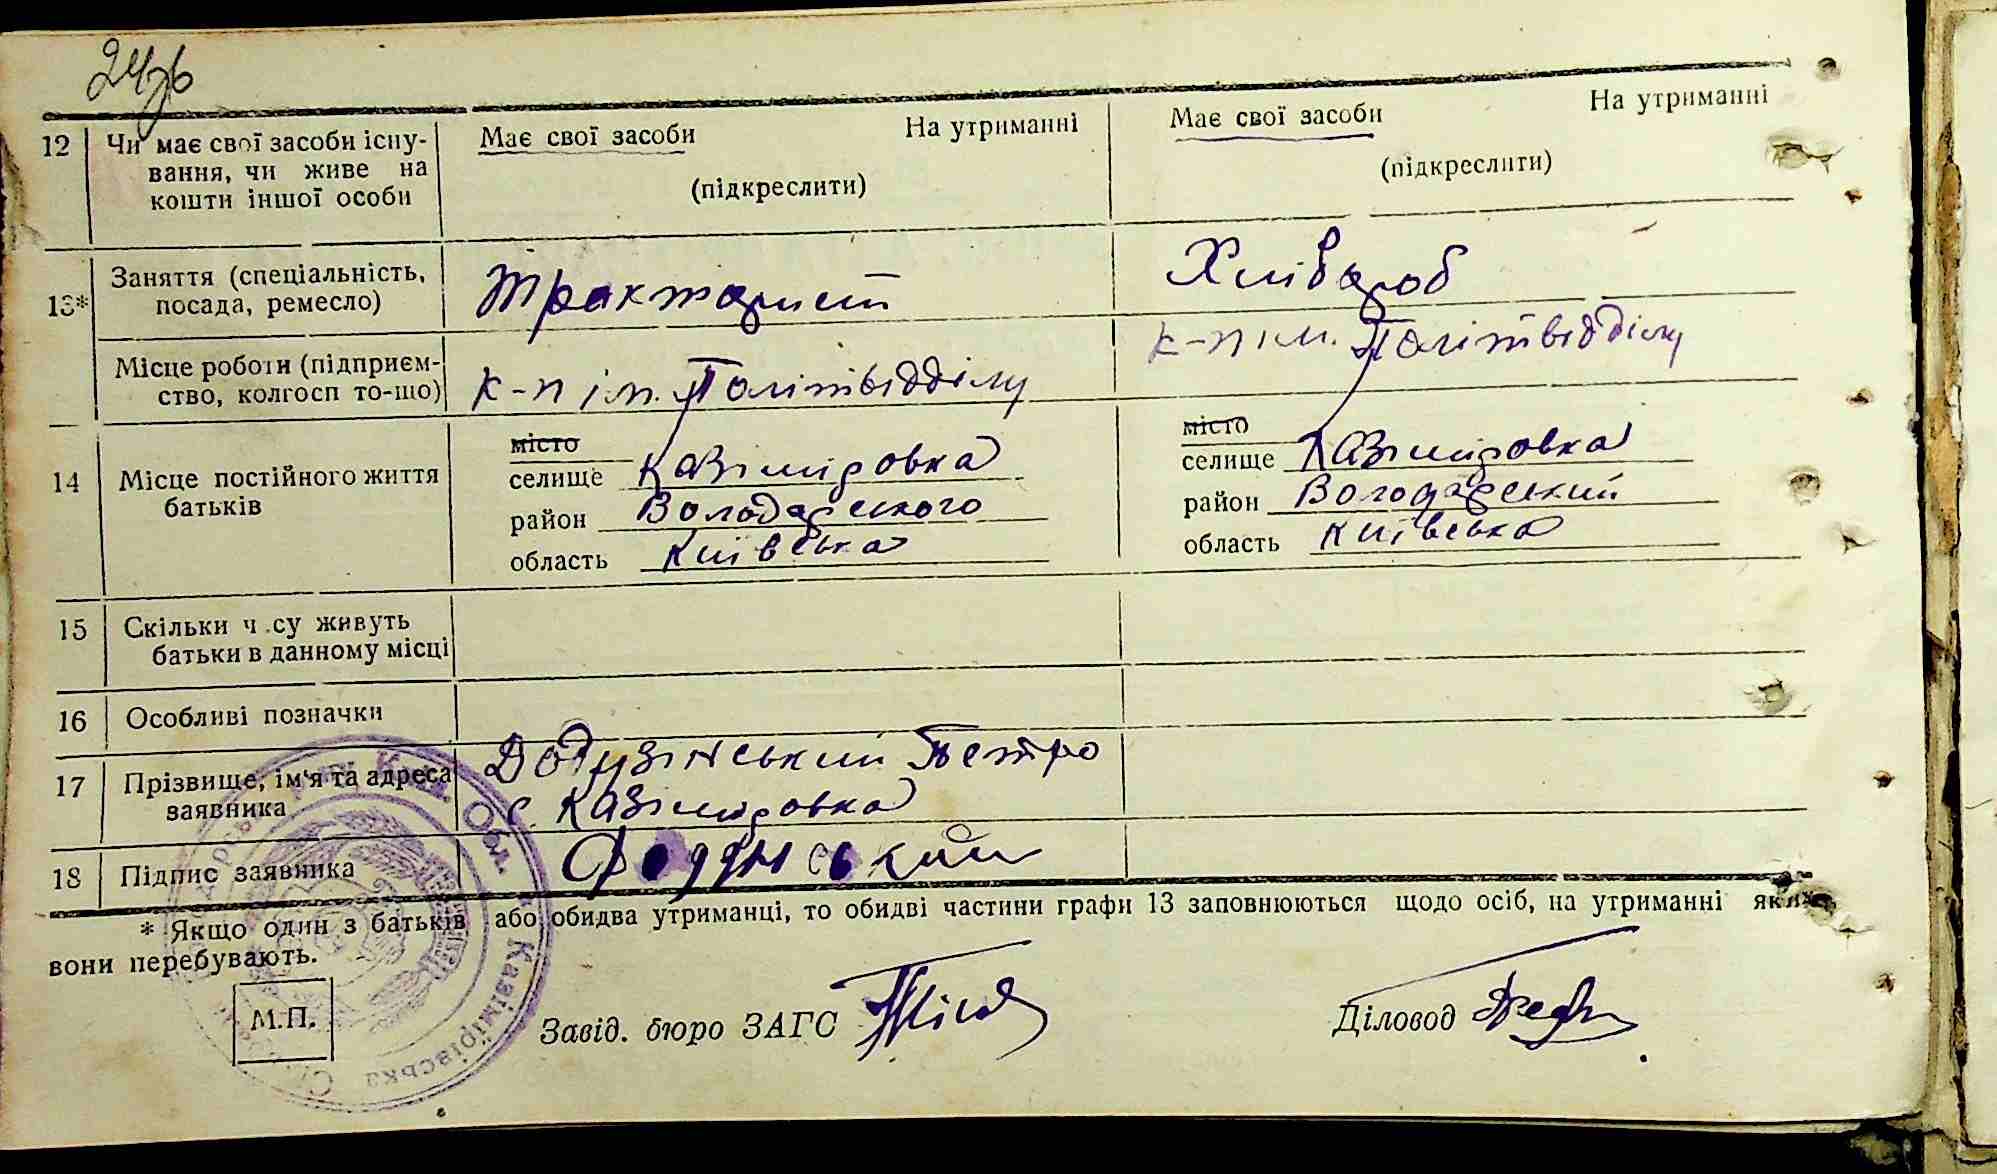 24зб
12 Чи має свої засоби існу- Має свої засоби На утриманні Має свої засоби На утриманні
вання, чи живе на (підкреслити) (підкреслити)
кошти іншої особи
13* Заняття (спеціальність, Тракторист Хлібороб
посада, ремесло)
Місце роботи (підприєм- к-п ім. Політвідділу к-п ім. Політвідділу
ство, колгосп то-що)
14 Місце постійного життя місто місто
батьків селище Казіміровка селище Казіміровка
район Володарського район Володарський
область Київська область Київська
15 Скільки ч су живуть
батьки в данному місці
16 Особливі позначки
17 Прізвище, ім'я та адреса Петро
заявника с. Казіміровка
18 Підпис заявника
* Якщо один з батьків або обидва утриманці, то обидві частини графи 13 заповнюються щодо осіб, на утриманні яких
вони перебувають.
М.П. Завід. бюро ЗАГС Діловод
Київ. Обл. Казімірівська